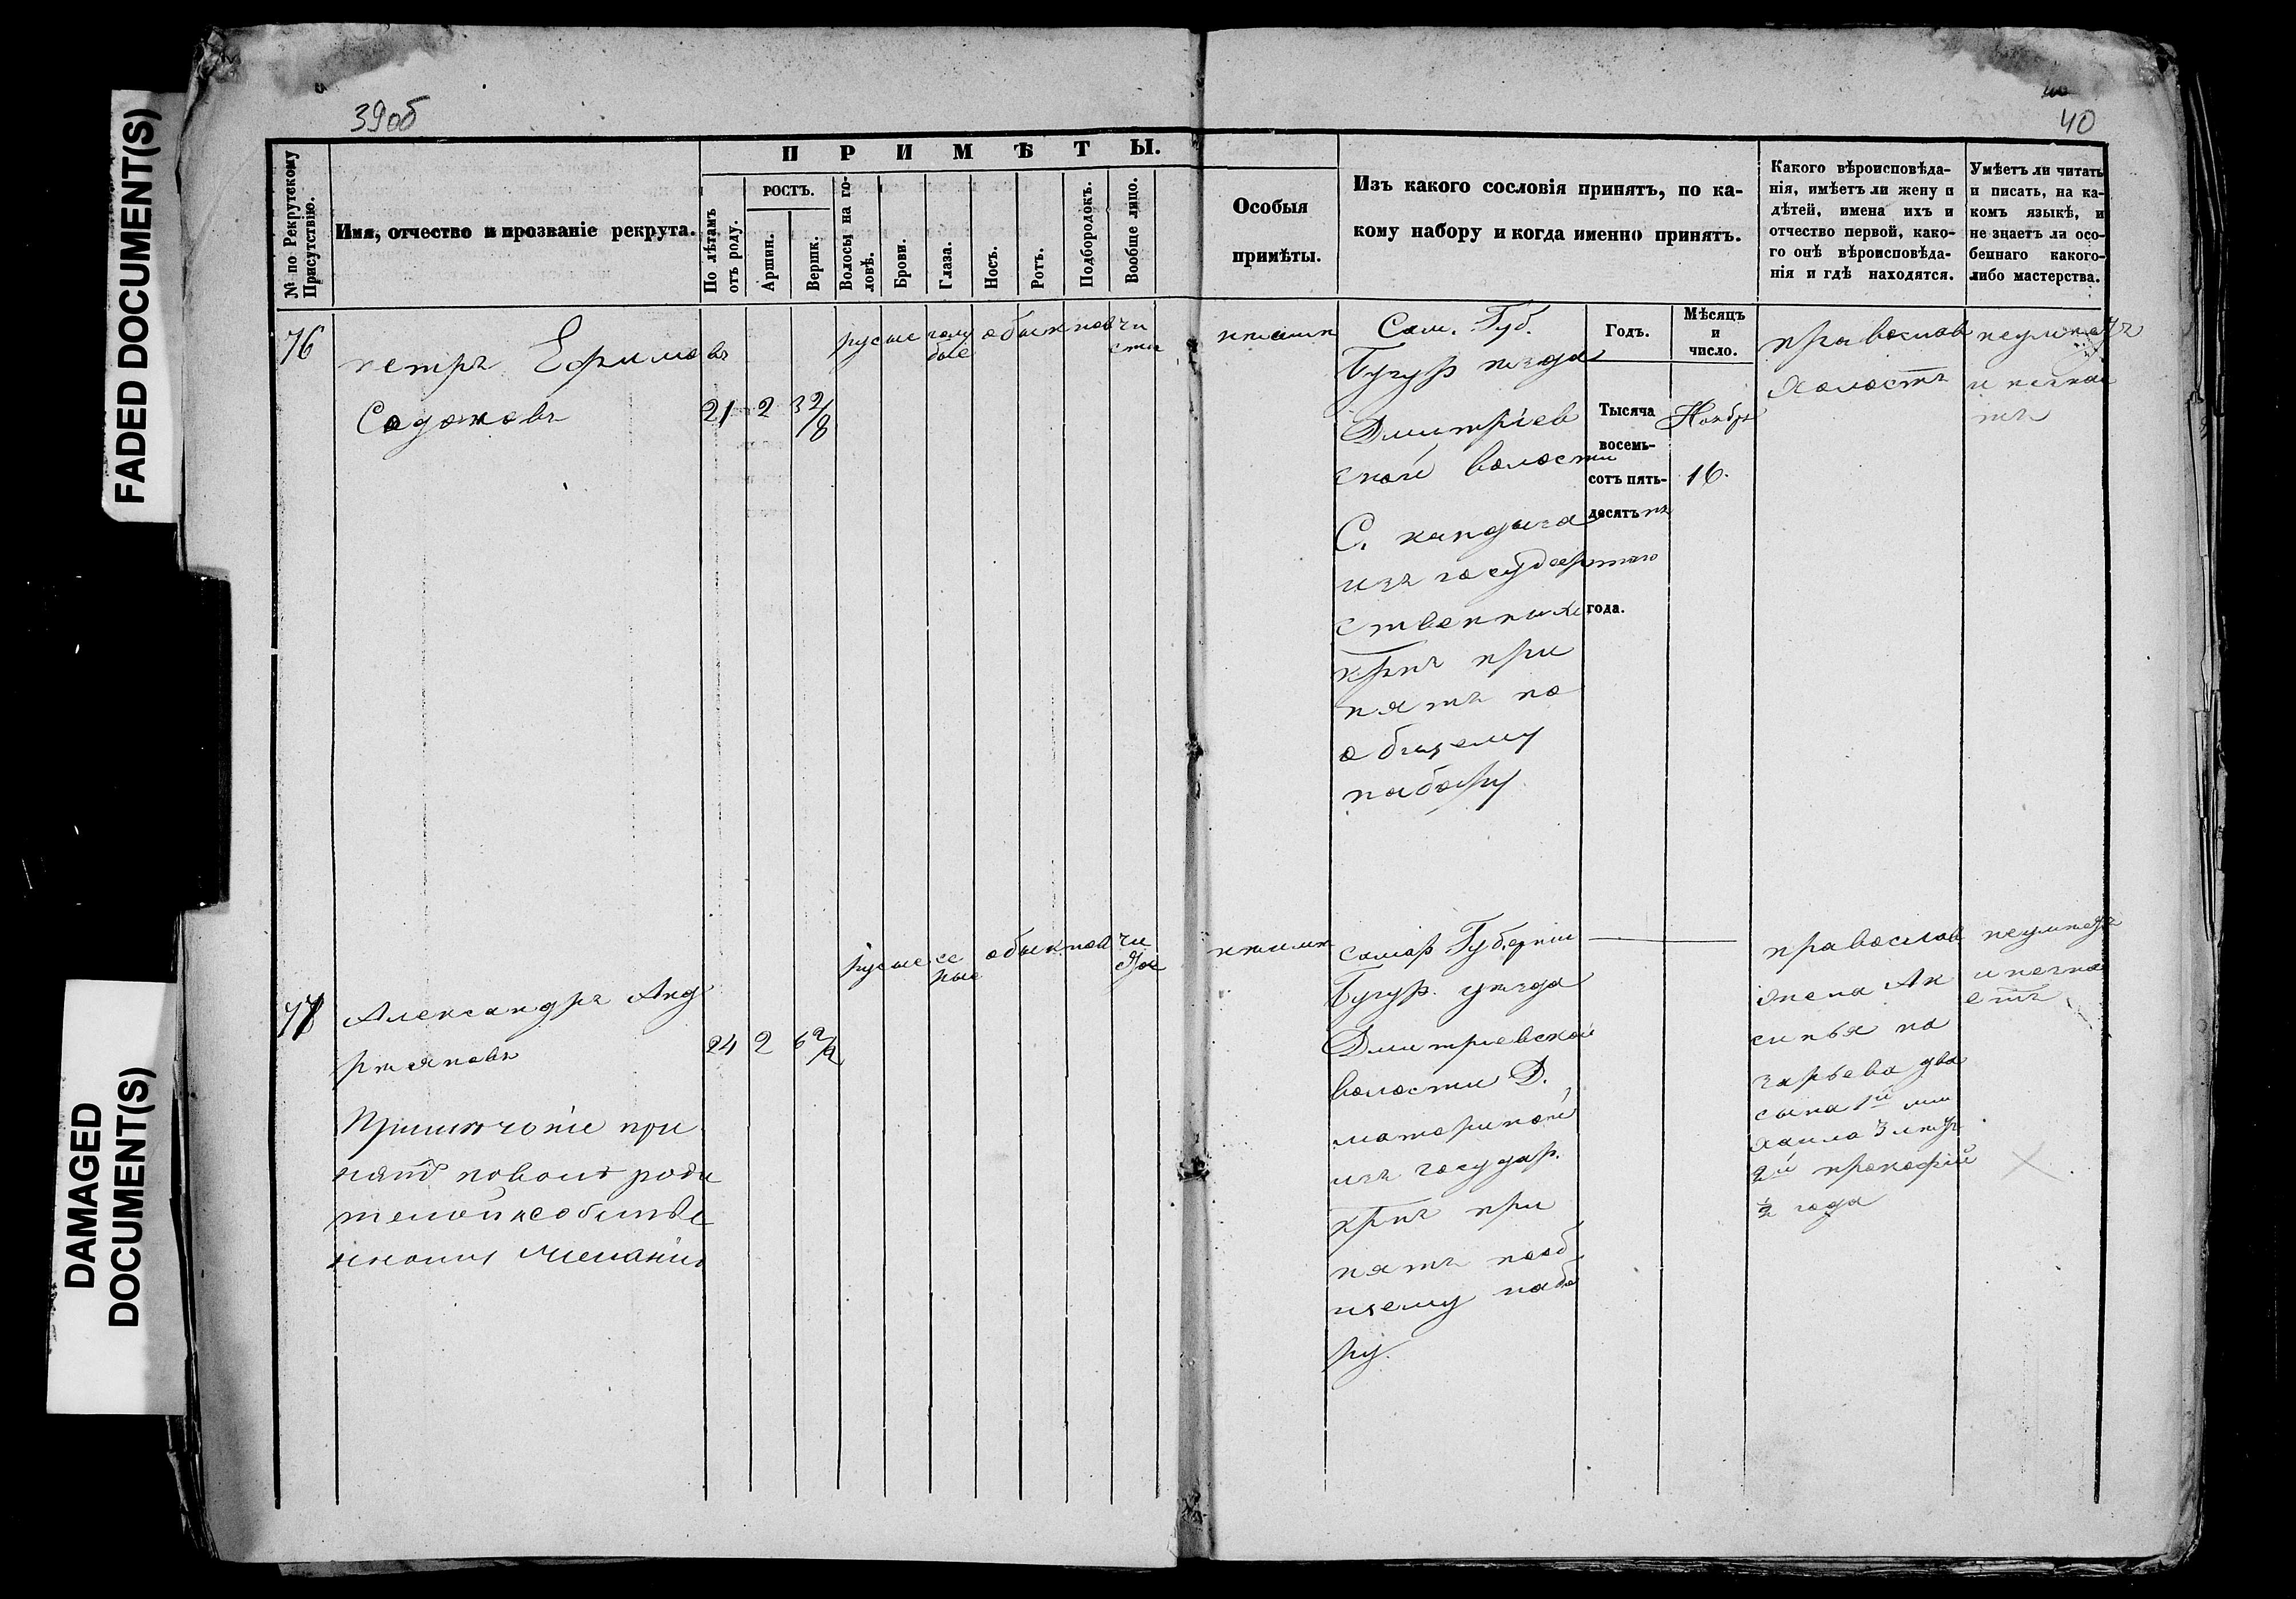 FADED DOCUMENT(S)
DAMAGED
DOCUMENT(S)
39об
40
40
№ по Рекрутскому
Присутствію.
Имя, отчество и прозваніе рекрута.
ПРИМѢТЫ.
По лѣтамъ
отъ роду.
РОСТЪ.
Аршин.
Вершк.
Волосы на го-
ловѣ.
Брови.
Глаза.
Носъ.
Ротъ.
Подбородокъ.
Вообще лицо.
Особыя
примѣты.
Изъ какого сословія принятъ, по ка-
кому набору и когда именно принятъ.
Какого вѣроисповѣда-
нія, имѣетъ ли жену и
дѣтей, имена ихъ и
отчество первой, како-
го онѣ вѣроисповѣда-
нія и гдѣ находятся.
Умѣетъ ли читать
и писать, на ка-
комъ языкѣ, и
не знаетъ ли осо-
беннаго какого-
либо мастерства.
76
петръ Ефимовъ
Садоковъ
21 2 3 2/8
русые голу
бые
обыкнов чи
стое
Сам. Губ.
Бугур уезда
Дмитріев
ской волости
С.
изъ государ
ственныхъ
крпъ при
нятъ по
общему
набору
Годъ.
Тысяча
восемь-
сотъ пять-
десятъ
года.
Мѣсяцъ
и
число.
Ноября
16.
православ
холостъ
неумѣетъ
и незнае
тъ
77
Александръ Анд
ртяновъ
24 2 6
русые се
рые
обыкнов чи
стое
Примѣчаніе при
нятъ поволѣ роди
телей и собстве
нному желанію
самар Губерніи
Бугур. уѣзда
Дмитриевской
волости Д.
изъ государ.
крпъ при
нятъ пооб
щему набо
ру.
православ
жена Ак
синья на
зарьева два
сына 1й ми
хаила 3 летъ
2й прокофій
1/2 года
неумѣетъ
и незна
етъ